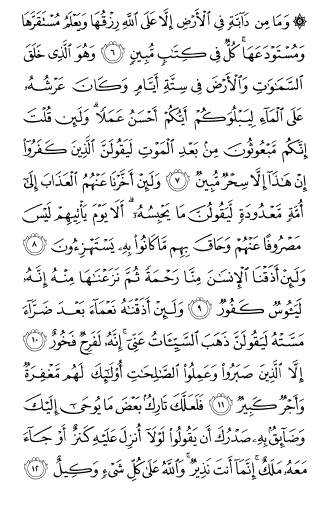 ۞ وَمَا مِن دَآبَّةٍ فِى ٱلْأَرْضِ إِلَّا عَلَى ٱللَّهِ رِزْقُهَا وَيَعْلَمُ مُسْتَقَرَّهَا
وَمُسْتَوْدَعَهَا ۚ كُلٌّ فِى كِتَٰبٍ مُّبِينٍ ٦ وَهُوَ ٱلَّذِى خَلَقَ
ٱلسَّمَٰوَٰتِ وَٱلْأَرْضَ فِى سِتَّةِ أَيَّامٍ وَكَانَ عَرْشُهُۥ
عَلَى ٱلْمَآءِ لِيَبْلُوَكُمْ أَيُّكُمْ أَحْسَنُ عَمَلًا ۗ وَلَئِن قُلْتَ
إِنَّكُم مَّبْعُوثُونَ مِنۢ بَعْدِ ٱلْمَوْتِ لَيَقُولَنَّ ٱلَّذِينَ كَفَرُوٓا۟
إِنْ هَٰذَآ إِلَّا سِحْرٌ مُّبِينٌ ٧ وَلَئِنْ أَخَّرْنَا عَنْهُمُ ٱلْعَذَابَ إِلَىٰٓ
أُمَّةٍ مَّعْدُودَةٍ لَّيَقُولُنَّ مَا يَحْبِسُهُۥٓ ۗ أَلَا يَوْمَ يَأْتِيهِمْ لَيْسَ
مَصْرُوفًا عَنْهُمْ وَحَاقَ بِهِم مَّا كَانُوا۟ بِهِۦ يَسْتَهْزِءُونَ ٨
وَلَئِنْ أَذَقْنَا ٱلْإِنسَٰنَ مِنَّا رَحْمَةً ثُمَّ نَزَعْنَٰهَا مِنْهُ إِنَّهُۥ
لَيَـُٔوسٌ كَفُورٌ ٩ وَلَئِنْ أَذَقْنَٰهُ نَعْمَآءَ بَعْدَ ضَرَّآءَ
مَسَّتْهُ لَيَقُولَنَّ ذَهَبَ ٱلسَّيِّـَٔاتُ عَنِّىٓ ۚ إِنَّهُۥ لَفَرِحٌ فَخُورٌ ١٠
إِلَّا ٱلَّذِينَ صَبَرُوا۟ وَعَمِلُوا۟ ٱلصَّٰلِحَٰتِ أُو۟لَٰٓئِكَ لَهُم مَّغْفِرَةٌ
وَأَجْرٌ كَبِيرٌ ١١ فَلَعَلَّكَ تَارِكٌۢ بَعْضَ مَا يُوحَىٰٓ إِلَيْكَ
وَضَآئِقٌۢ بِهِۦ صَدْرُكَ أَن يَقُولُوا۟ لَوْلَآ أُنزِلَ عَلَيْهِ كَنزٌ أَوْ جَآءَ
مَعَهُۥ مَلَكٌ ۚ إِنَّمَآ أَنتَ نَذِيرٌ ۚ وَٱللَّهُ عَلَىٰ كُلِّ شَىْءٍ وَكِيلٌ ١٢